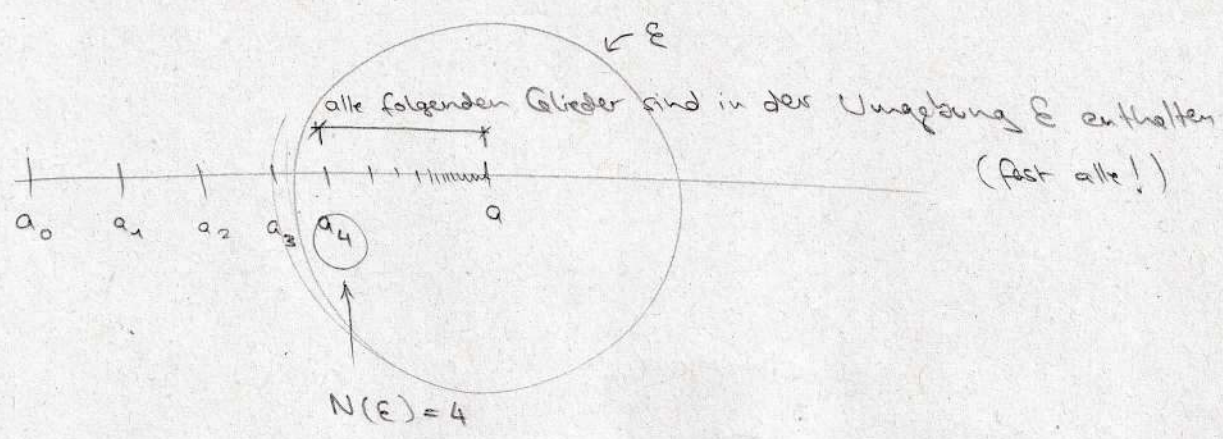 ε
alle folgenden Glieder sind in der Umgebung ε enthalten
(fast alle!)
a₀ a₁ a₂ a₃ a₄ a
N(ε) = 4